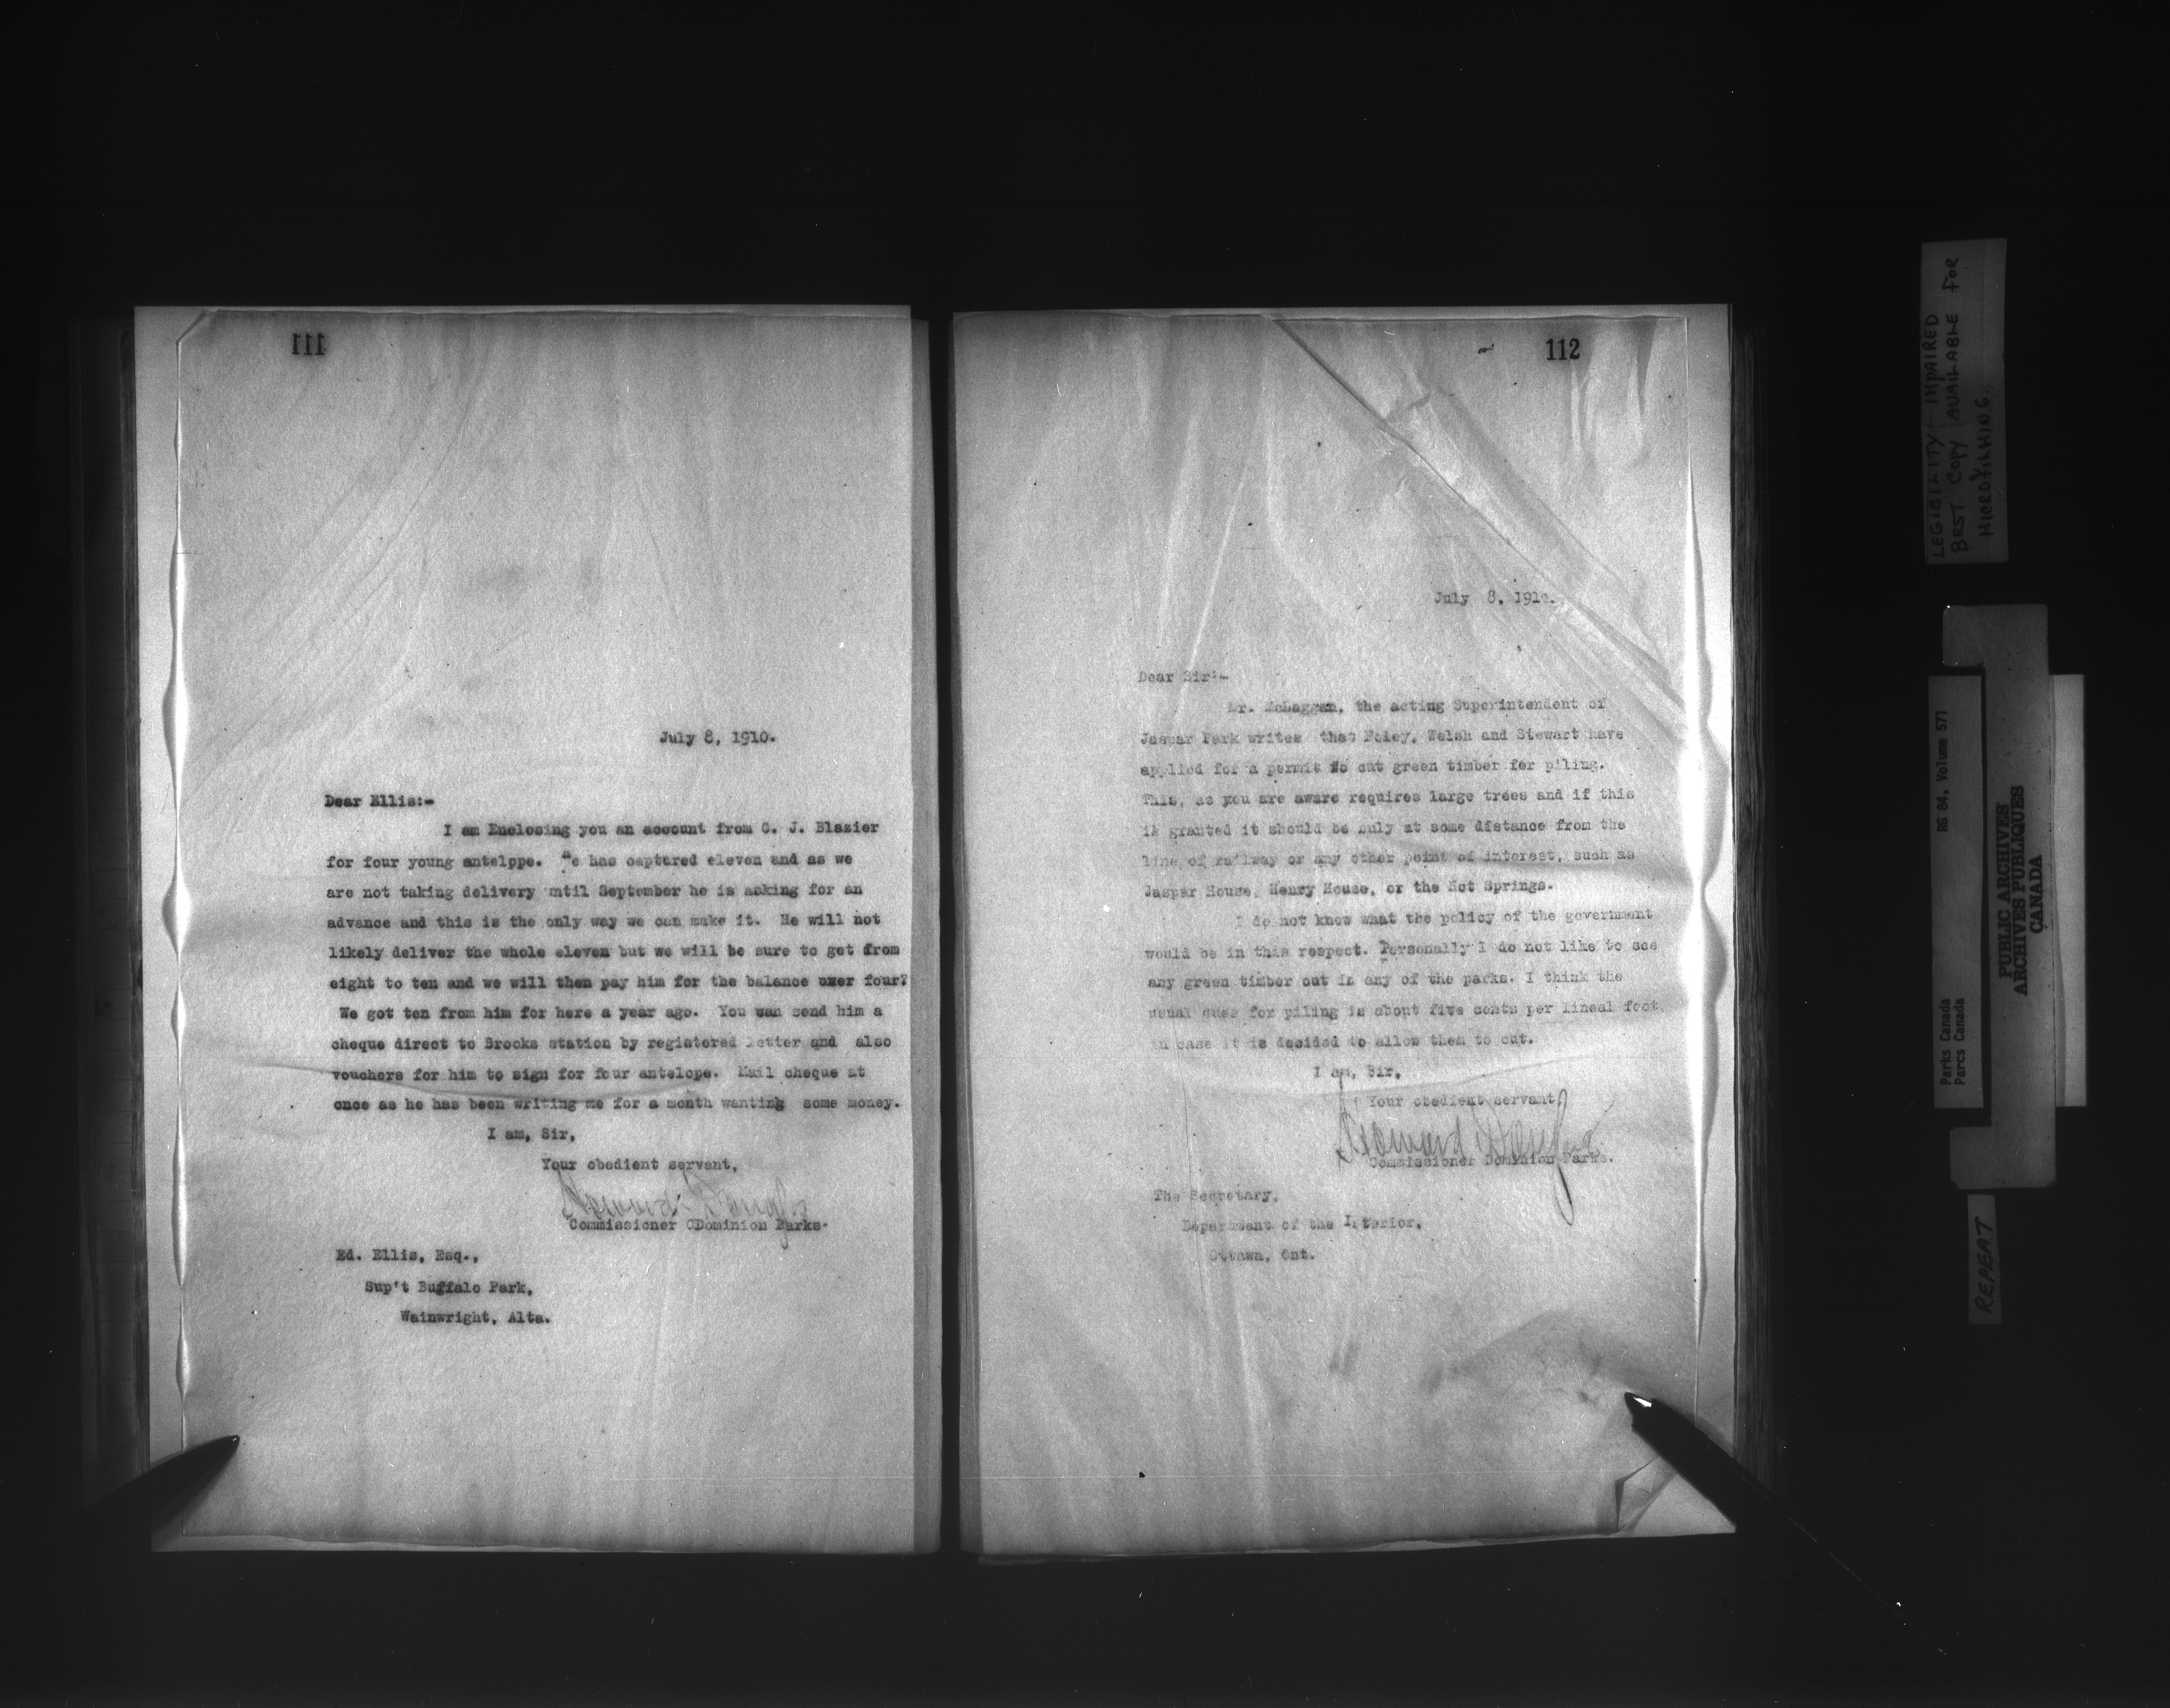 111
July 8, 1910.
Dear Ellis:-
I am Enclosing you an account from C. J. Blazier
for four young antelppe. He has captured eleven and as we
are not taking delivery mtil September he is asking for an
advance and this is the only way we can make it. He will not
likely deliver the whole eleven but we will be sure to get from
eight to ten and we will then pay him for the balance over four?
We got ten from him for here a year ago. You can send him a
cheque direct to Brooks station by registered letter and also
vouchers for him to sign for four antelope. Mail cheque at
once as he has been writing me for a month wanting some money.
I am, Sir,
Your obedient servant,
Howard Douglas
Commissioner ODominion Parks.
Ed. Ellis, Esq.,
Sup't Buffalo Park,
Wainwright, Alta.
112
July 8, 1910.
Dear Sir:-
Mr. McLaggan, the acting Superintendent of
Jaspar Park writes that Foley, Welsh and Stewart have
applied for a permit to cut green timber for piling.
This, as you are aware requires large trees and if this
is granted it should be only at some distance from the
line of railway or any other point of interest, such as
Jaspar House, Henry House, or the Hot Springs.
I do not know what the policy of the government
would be in this respect. Personally I do not like to see
any green timber cut in any of the parks. I think the
usual dues for piling is about five cents per lineal foot
in case it is decided to allow them to cut.
I am, Sir,
Your obedient servant,
Howard Douglas
Commissioner Dominion Parks.
The Secretary,
Department of the Interior,
Ottawa, Ont.
LEGIBILITY IMPAIRED
BEST COPY AVAILABLE FOR
MICROFILMING.
RG 84, Volume 571
Parks Canada
Parcs Canada
PUBLIC ARCHIVES
ARCHIVES PUBLIQUES
CANADA
REPEAT